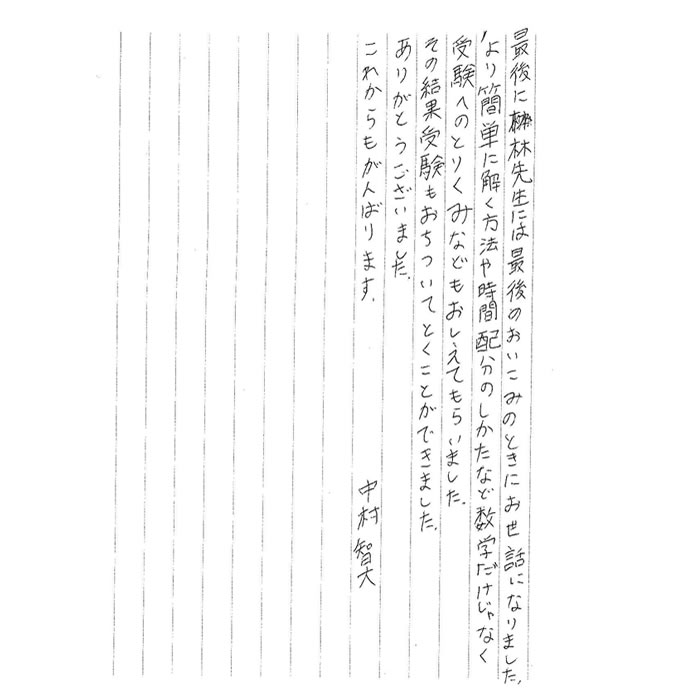 最後に林先生には最後のおいこみのときにお世話になりました。
より簡単に解く方法や時間配分のしかたなど数学だけじゃなく
受験へのとりくみなどもおしえてもらいました。
その結果受験もおちついてとくことができました。
ありがとうございました。
これからもがんばります。
中村智大